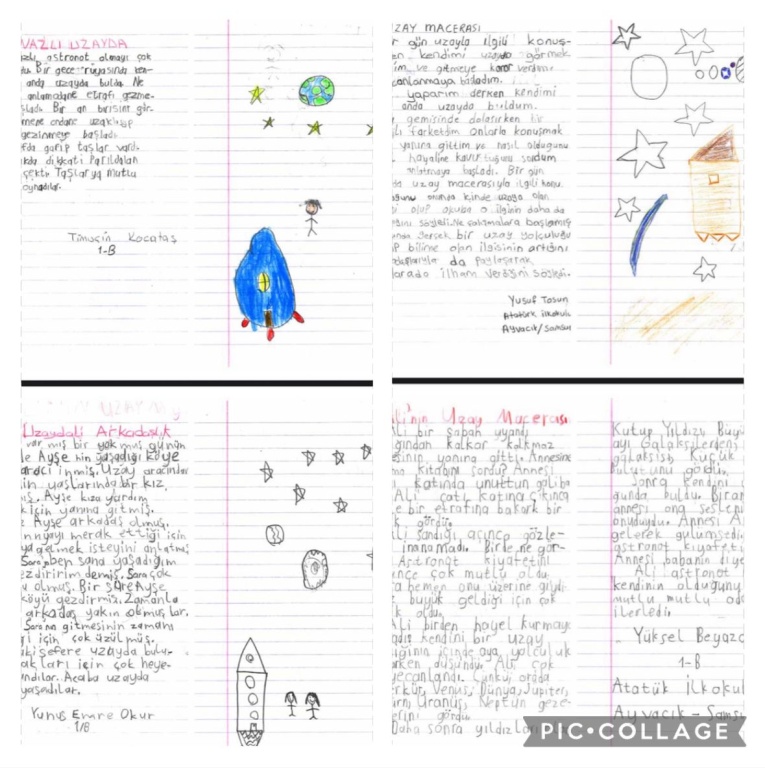 VAZLI UZAYDA
astronot olmayı çok
Bir gece rüyasında ken-
anda uzayda buldu. Ne
anlamadane etrafı gezme-
Bir an birisini gör-
gezinmeye başladı
garip taşlar vardı.
dikkati Parıldalan
çekti. Taşlarya mutlu
oynadılar.
Timuçin Kocataş
1-B
UZAY MACERASI
r gün uzayla ilgili konuş-
en kendimi uzayda görmek
im ve gitmeye karar verdim.
canlanmaya başladım.
yaparım derken kendimi
anda uzayda buldum.
gemisinde dolaşırken bir
farkettim onlarla konuşmak
yanına gittim ve nasıl olduğunu
hayaline kavuştuğunu sordum
anlatmaya başladı. Bir gün
da uzay macerasıyla ilgili konu.
içinde uzaya olan
olup okulda o ilginin daha da
söyledi. Ne çalışmalara başlamış
anda gerçek bir uzay yolculuğu
P bilime olan ilgisinin arttığını
da paylaşarak
ilham verdiğini söyledi.
Yusuf Tosun
Atatürk ilkokulu
Ayvacık/Samsun
Uzaydaki Arkadaşlık
var mış bir yok muş günün
de Ayşe nin yaşadığı köye
aracı inmiş. Uzay aracından
in yaşlarında bir kız
ış. Ayşe kıza yardım
k için yanına gitmiş.
Ayşe arkadaş olmuş.
nyayı merak ettiği için
ya gelmek isteyini anlatmış
Sara ben sana yaşadığım
ezdiririm demiş. Sara çok
u olmuş. Bir süre Ayşe
köyü gezdirmiş. Zamanla
arkadaş yakın olmuşlar.
Sara nın gitmesinin zamanı
i için çok üzülmüş.
ki sefere uzayda bulu-
akları için çok heye-
ndılar. Acaba uzayda
yaşadılar.
Yunus Emre Okur
1/B
Ali'nin Uzay Macerası
Ali bir sabah uyandı
ğından kalkar kalkmaz
esinin yanına gitti. Annesine
ma kitabını sordu? Annesi
katında unuttun galiba
Ali çatı katına çıkınca
e bir etrafına bakark bir
k gördü.
li sandığı açınca gözle-
inanamadı. Birde ne gör-
Astronot kıyafetini
ince çok mutlu oldu.
a hemen onu üzerine giydi
büyük geldiği için çok
k oldu.
Ali birden hayel kurmaya
adı kendini bir uzay
iğinin içinde aya yolculuk
rken düşündü. Ali çok
yecanlandı. Çünkü orada
rkür, Venüs, Dünya, Jüpiter,
rn Uranüs, Neptün geze-
erini gördü.
Daha sonra yıldızları
Kutup Yıldızı Büy
ayı Galaksilerdens
galaksisi Küçük
bulutunu gördü.
Sonra kendini
ğunda buldu. Biran
annesi ona sesleni
onuduydu. Annesi A
gelerek gülümsedi
astronot kıyafeti
Annesi babanın diye
Ali astronot
kendinin olduğunu
mutlu mutlu oda
ilerledi.
Yüksel Beyaz
1-B
Atatük İlkokul
Ayvacık - Sams
PIC•COLLAGE